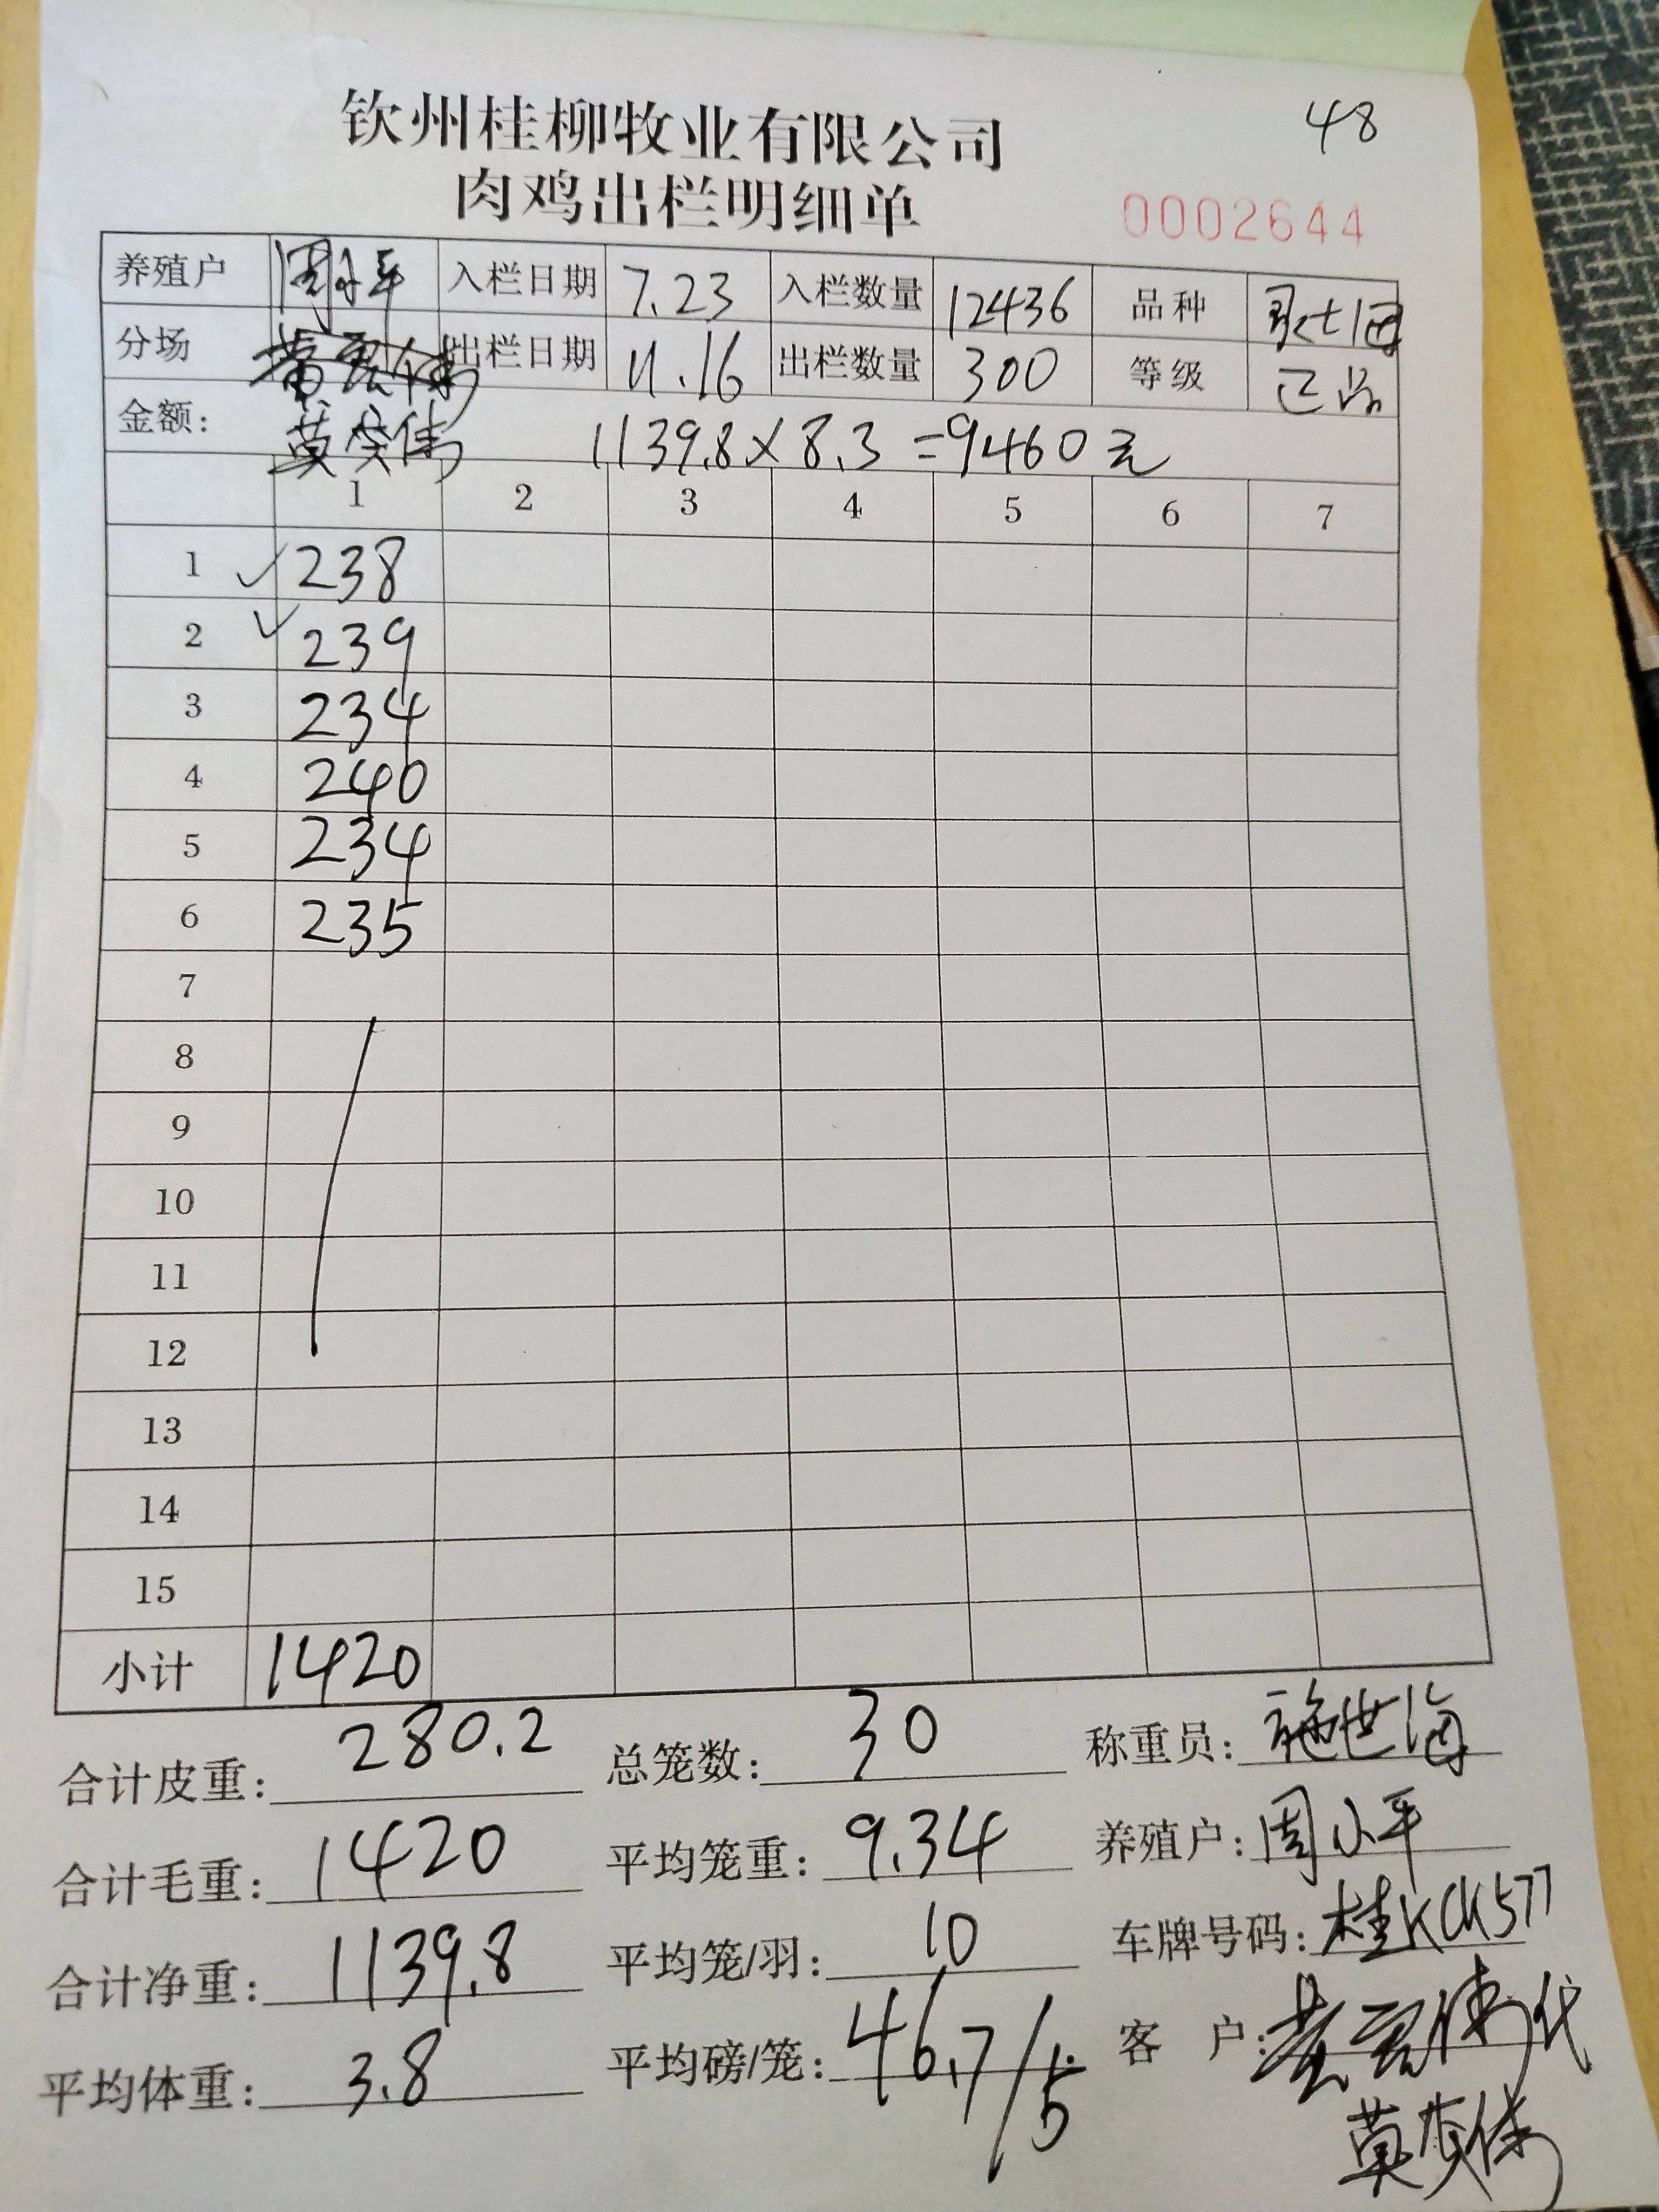 48
钦州桂柳牧业有限公司
肉鸡出栏明细单
0002644
养殖户 周小平 入栏日期 7.23 入栏数量 12436 品种
分场 出栏日期 11.16 出栏数量 300 等级 正品
金额: 1139.8×8.3=9460元
1 2 3 4 5 6 7
1 238
2 239
3 234
4 240
5 234
6 235
7
8
9
10
11
12
13
14
15
小计 1420
合计皮重: 280.2 总笼数: 30 称重员: 施世海
合计毛重: 1420 平均笼重: 9.34 养殖户: 周小平
合计净重: 1139.8 平均笼/羽: 10 车牌号码: 桂KCK577
平均体重: 3.8 平均磅/笼: 46.7/5 客 户: 代